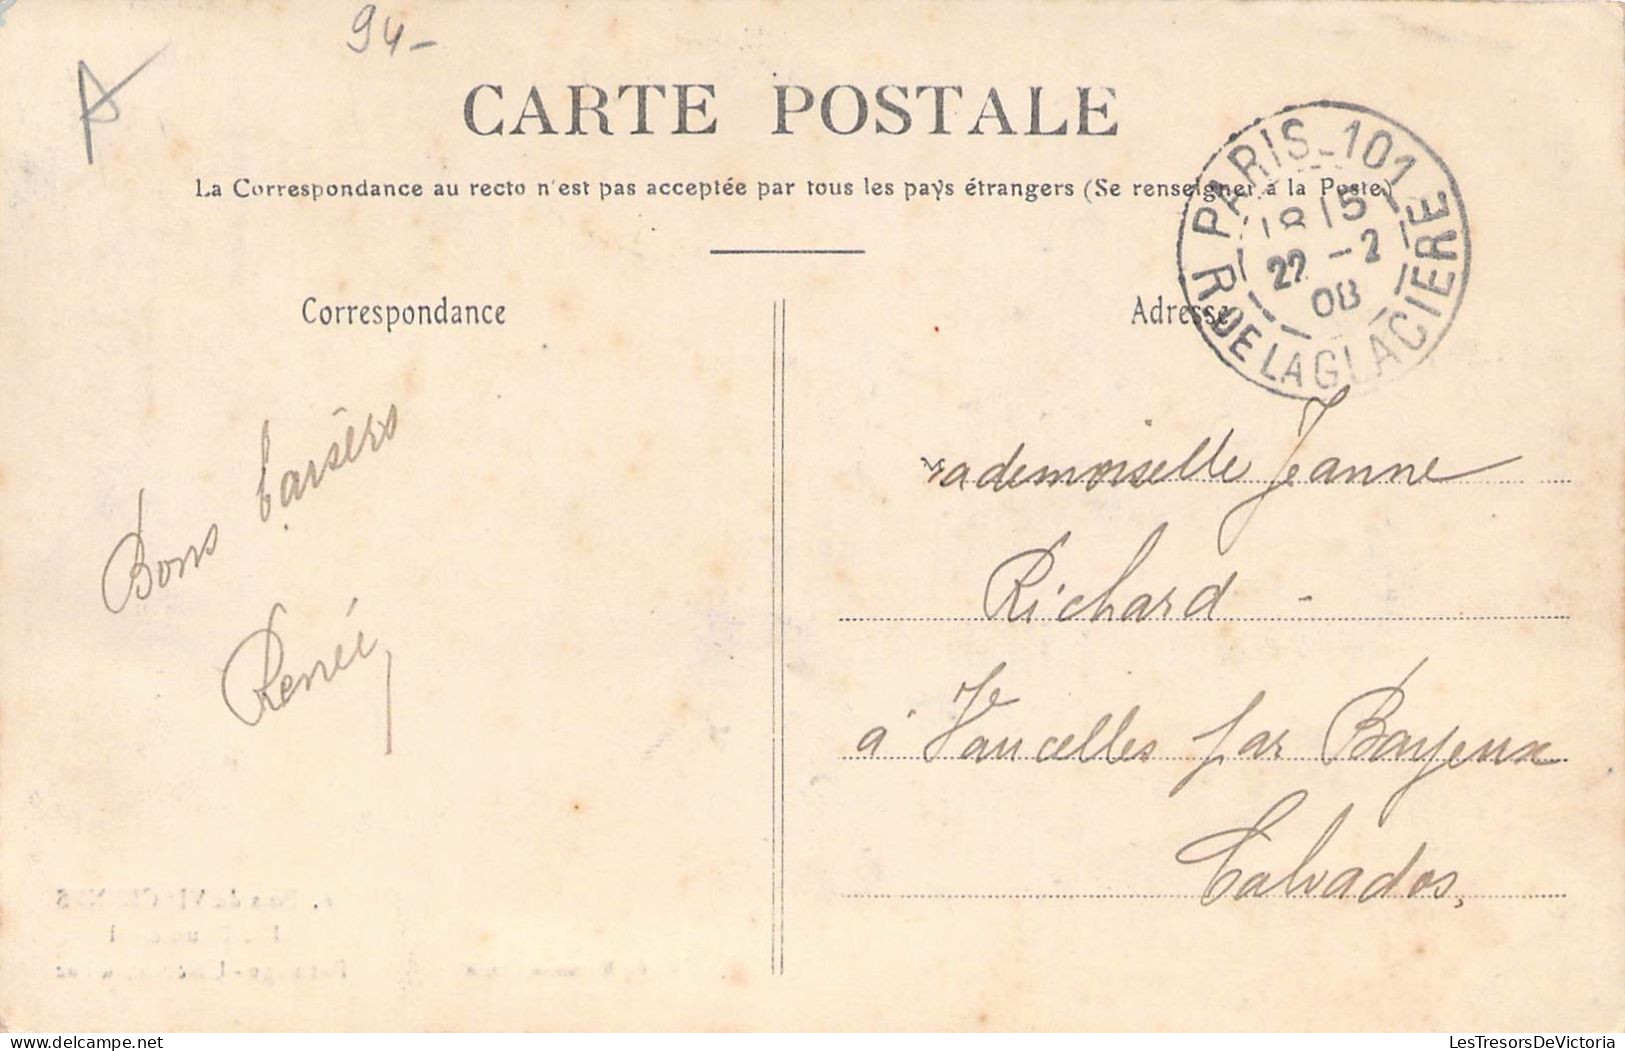 94-
A
CARTE POSTALE
La Correspondance au recto n'est pas acceptée par tous les pays étrangers (Se renseigner à la Poste)
PARIS_101
18 15
22 -2
08
R. DE LA GLACIERE
Correspondance
Bons baisers
Renée
Adresse
Mademoiselle Jeanne
Richard -
à Vaucelles par Bayeux
Calvados,
LesTresorsDeVictoria